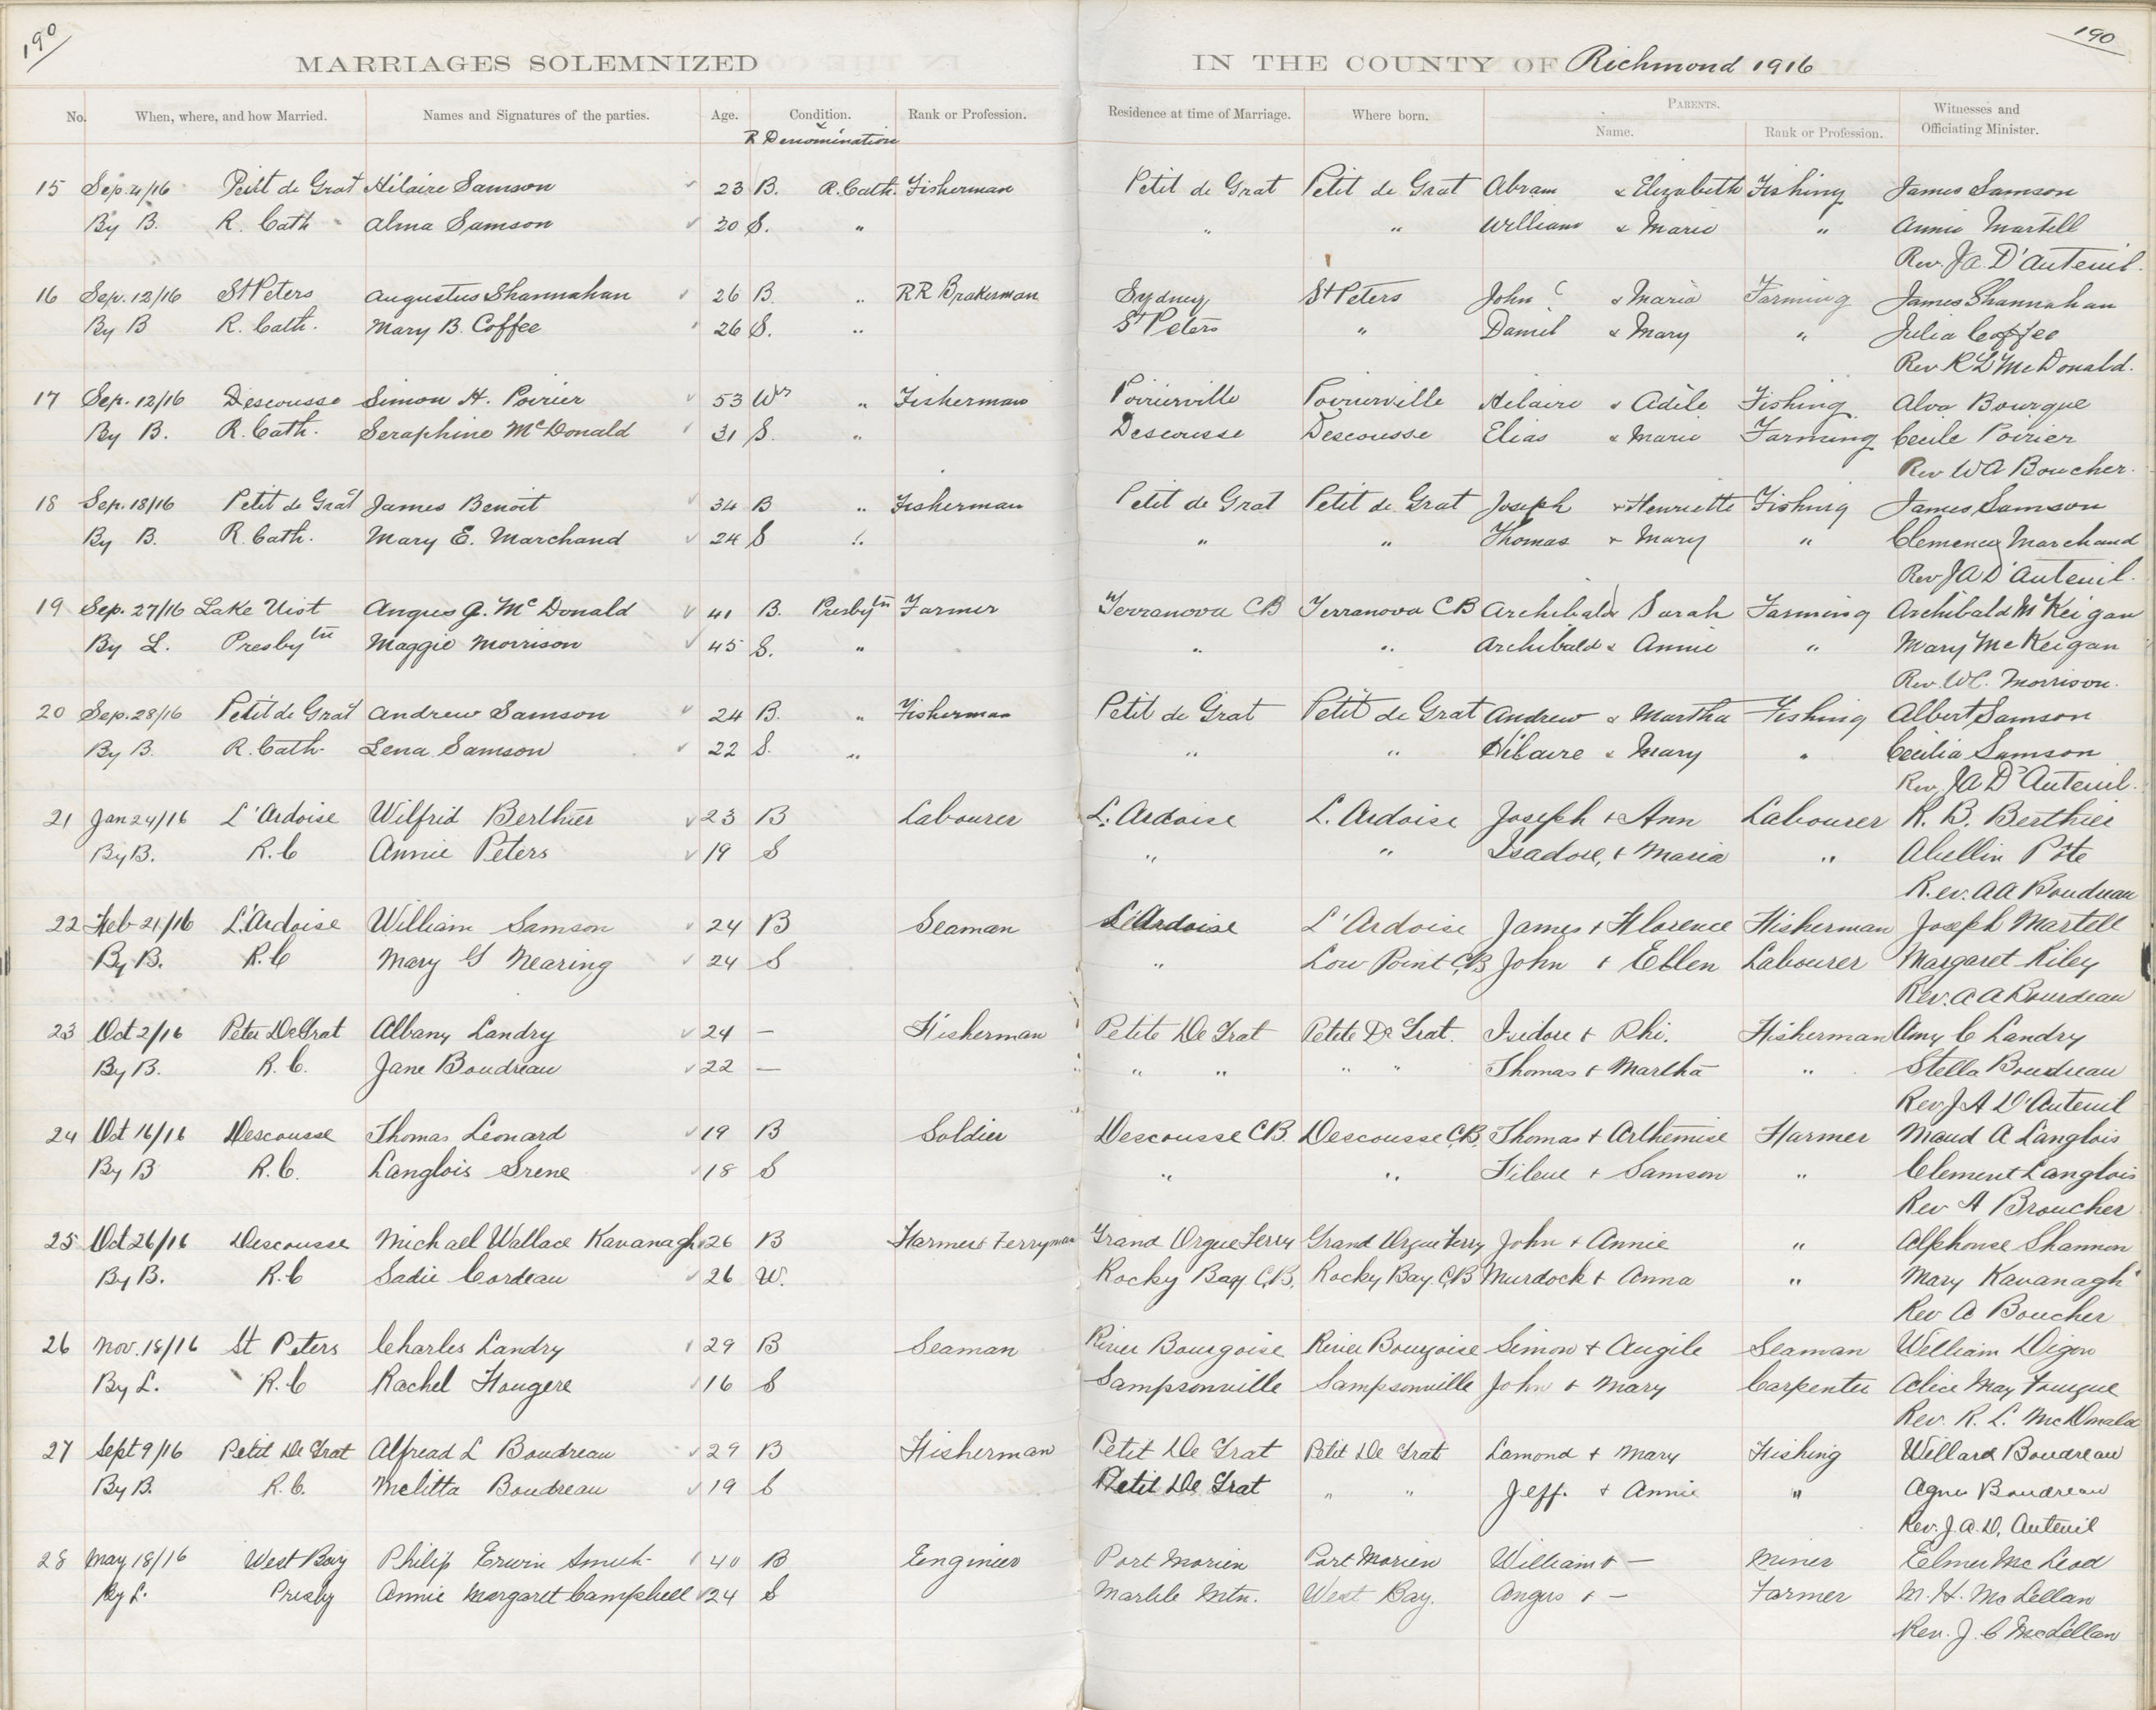 190
190
MARRIAGES SOLEMNIZED IN THE COUNTY OF Richmond 1916
No. When, where, and how Married. Names and Signatures of the parties. Age. Condition. Rank or Profession. Residence at time of Marriage. Where born. PARENTS. Witnesses and Officiating Minister.
R Denomination Name. Rank or Profession.
15 Sep. 4/16 Petit de Grat Hilaire Samson 23 B. R. Cath. Fisherman Petit de Grat Petit de Grat Abram & Elizabeth Fishing James Samson
By B. R. Cath Alma Samson S. " " " William & Marie " Annie Martell
Rev. J A. D'Auteuil.
16 Sep. 12/16 St Peters Augustus Shannahan 26 B. " RR Brakeman Sydney St Peters John C & Maria Farming James Shannahan
By B R. Cath. Mary B. Coffee 26 S. " St Peters " Daniel & Mary " Julia Coffee
Rev R L McDonald.
17 Sep. 12/16 Descousse Simon H. Poirier 53 Wr " Fisherman Poirierville Poirierville Hilaire & Adèle Fishing Alva Bourque
By B. R. Cath. Seraphine McDonald 31 S. " Descousse Descousse Elias & Marie Farming Cecile Poirier
Rev W A Boucher.
18 Sep. 18/16 Petit de Grat James Benoit 34 B " Fisherman Petit de Grat Petit de Grat Joseph & Henriette Fishing James Samson
By B. R. Cath. Mary E. Marchand 24 S " " " Thomas & Mary " Clemency Marchand
Rev J A D'Auteuil.
19 Sep. 27/16 Lake Uist Angus J. McDonald 41 B. Presbytn Farmer Terranova CB Terranova CB Archibald & Sarah Farming Archibald McKeigan
By L. Presbytn Maggie Morrison 45 S. " " " Archibald & Annie " Mary McKeigan
Rev. W C. Morrison.
20 Sep. 28/16 Petit de Grat Andrew Samson 24 B. " Fisherman Petit de Grat Petit de Grat Andrew & Martha Fishing Albert Samson
By B. R. Cath. Lena Samson 22 S. " " " Hilaire & Mary " Cecilia Samson
Rev. J A D'Auteuil.
21 Jan 24/16 L'Ardoise Wilfrid Berthier 23 B Labourer L. Ardoise L. Ardoise Joseph + Ann Labourer R. B. Berthier
By B. R. C Annie Peters 19 S " " Isadore, + Maria " Pote
Rev. A A Boudreau
22 Feb 21/16 L'Ardoise William Samson 24 B Seaman L'Ardoise L'Ardoise James + Florence Fisherman Joseph Martell
By B. R. C Mary G Nearing 24 S " Low Point C.B John + Ellen Labourer Margaret Riley
Rev. A A Bourdeau
23 Oct 2/16 Peter De Grat Albany Landry 24 — Fisherman Petite De Grat Petite De Grat. Isidore + Phi. Fisherman Amy C Landry
By B. R. C. Jane Boudreau 22 — " " " " Thomas + Martha " Stella Boudreau
Rev J A D'Auteuil
24 Oct 16/16 Descousse Thomas Leonard 19 B Soldier Descousse C.B. Descousse C.B. Thomas + Arthemise Farmer Maud A Langlois
By B R. C. Langlois Irene 18 S " " + Samson " Clement Langlois
Rev A Broucher
25 Oct 26/16 Descousse Michael Wallace Kavanagh 26 B Farmer & Ferryman Grand Digue Ferry Grand Digue Ferry John + Annie " Alphonse Shannon
By B. R. C Sadie Cordeau 26 W. Rocky Bay C.B. Rocky Bay. C.B Murdock + Anna " Mary Kavanagh
Rev A Boucher
26 Nov. 18/16 St Peters Charles Landry 29 B Seaman River Bourgoise River Bourgoise Simon + Angile Seaman William Digon
By L. R. C Rachel Fougere 16 S Sampsonville Sampsonville John + Mary Carpenter Alice May
Rev. R. L. McDonald
27 Sept 9/16 Petit De Grat Alfread L Boudreau 29 B Fisherman Petit De Grat Petit De Grat Lamond + Mary Fishing Willard Boudreau
By B. R. C. Melitta Boudreau 19 S Petit De Grat " " Jeff. + Annie " Agnes Boudreau
Rev. J. A. D, Auteuil
28 May 18/16 West Bay Philip Erwin 40 B Engineer Port Morien Port Morien William + — Miner Elmer McLeod
By L. Presby Annie Margaret Campbell 24 S Marble Mtn. West Bay. Angus + — Farmer M. H. McLellan
Rev. J. C McLellan